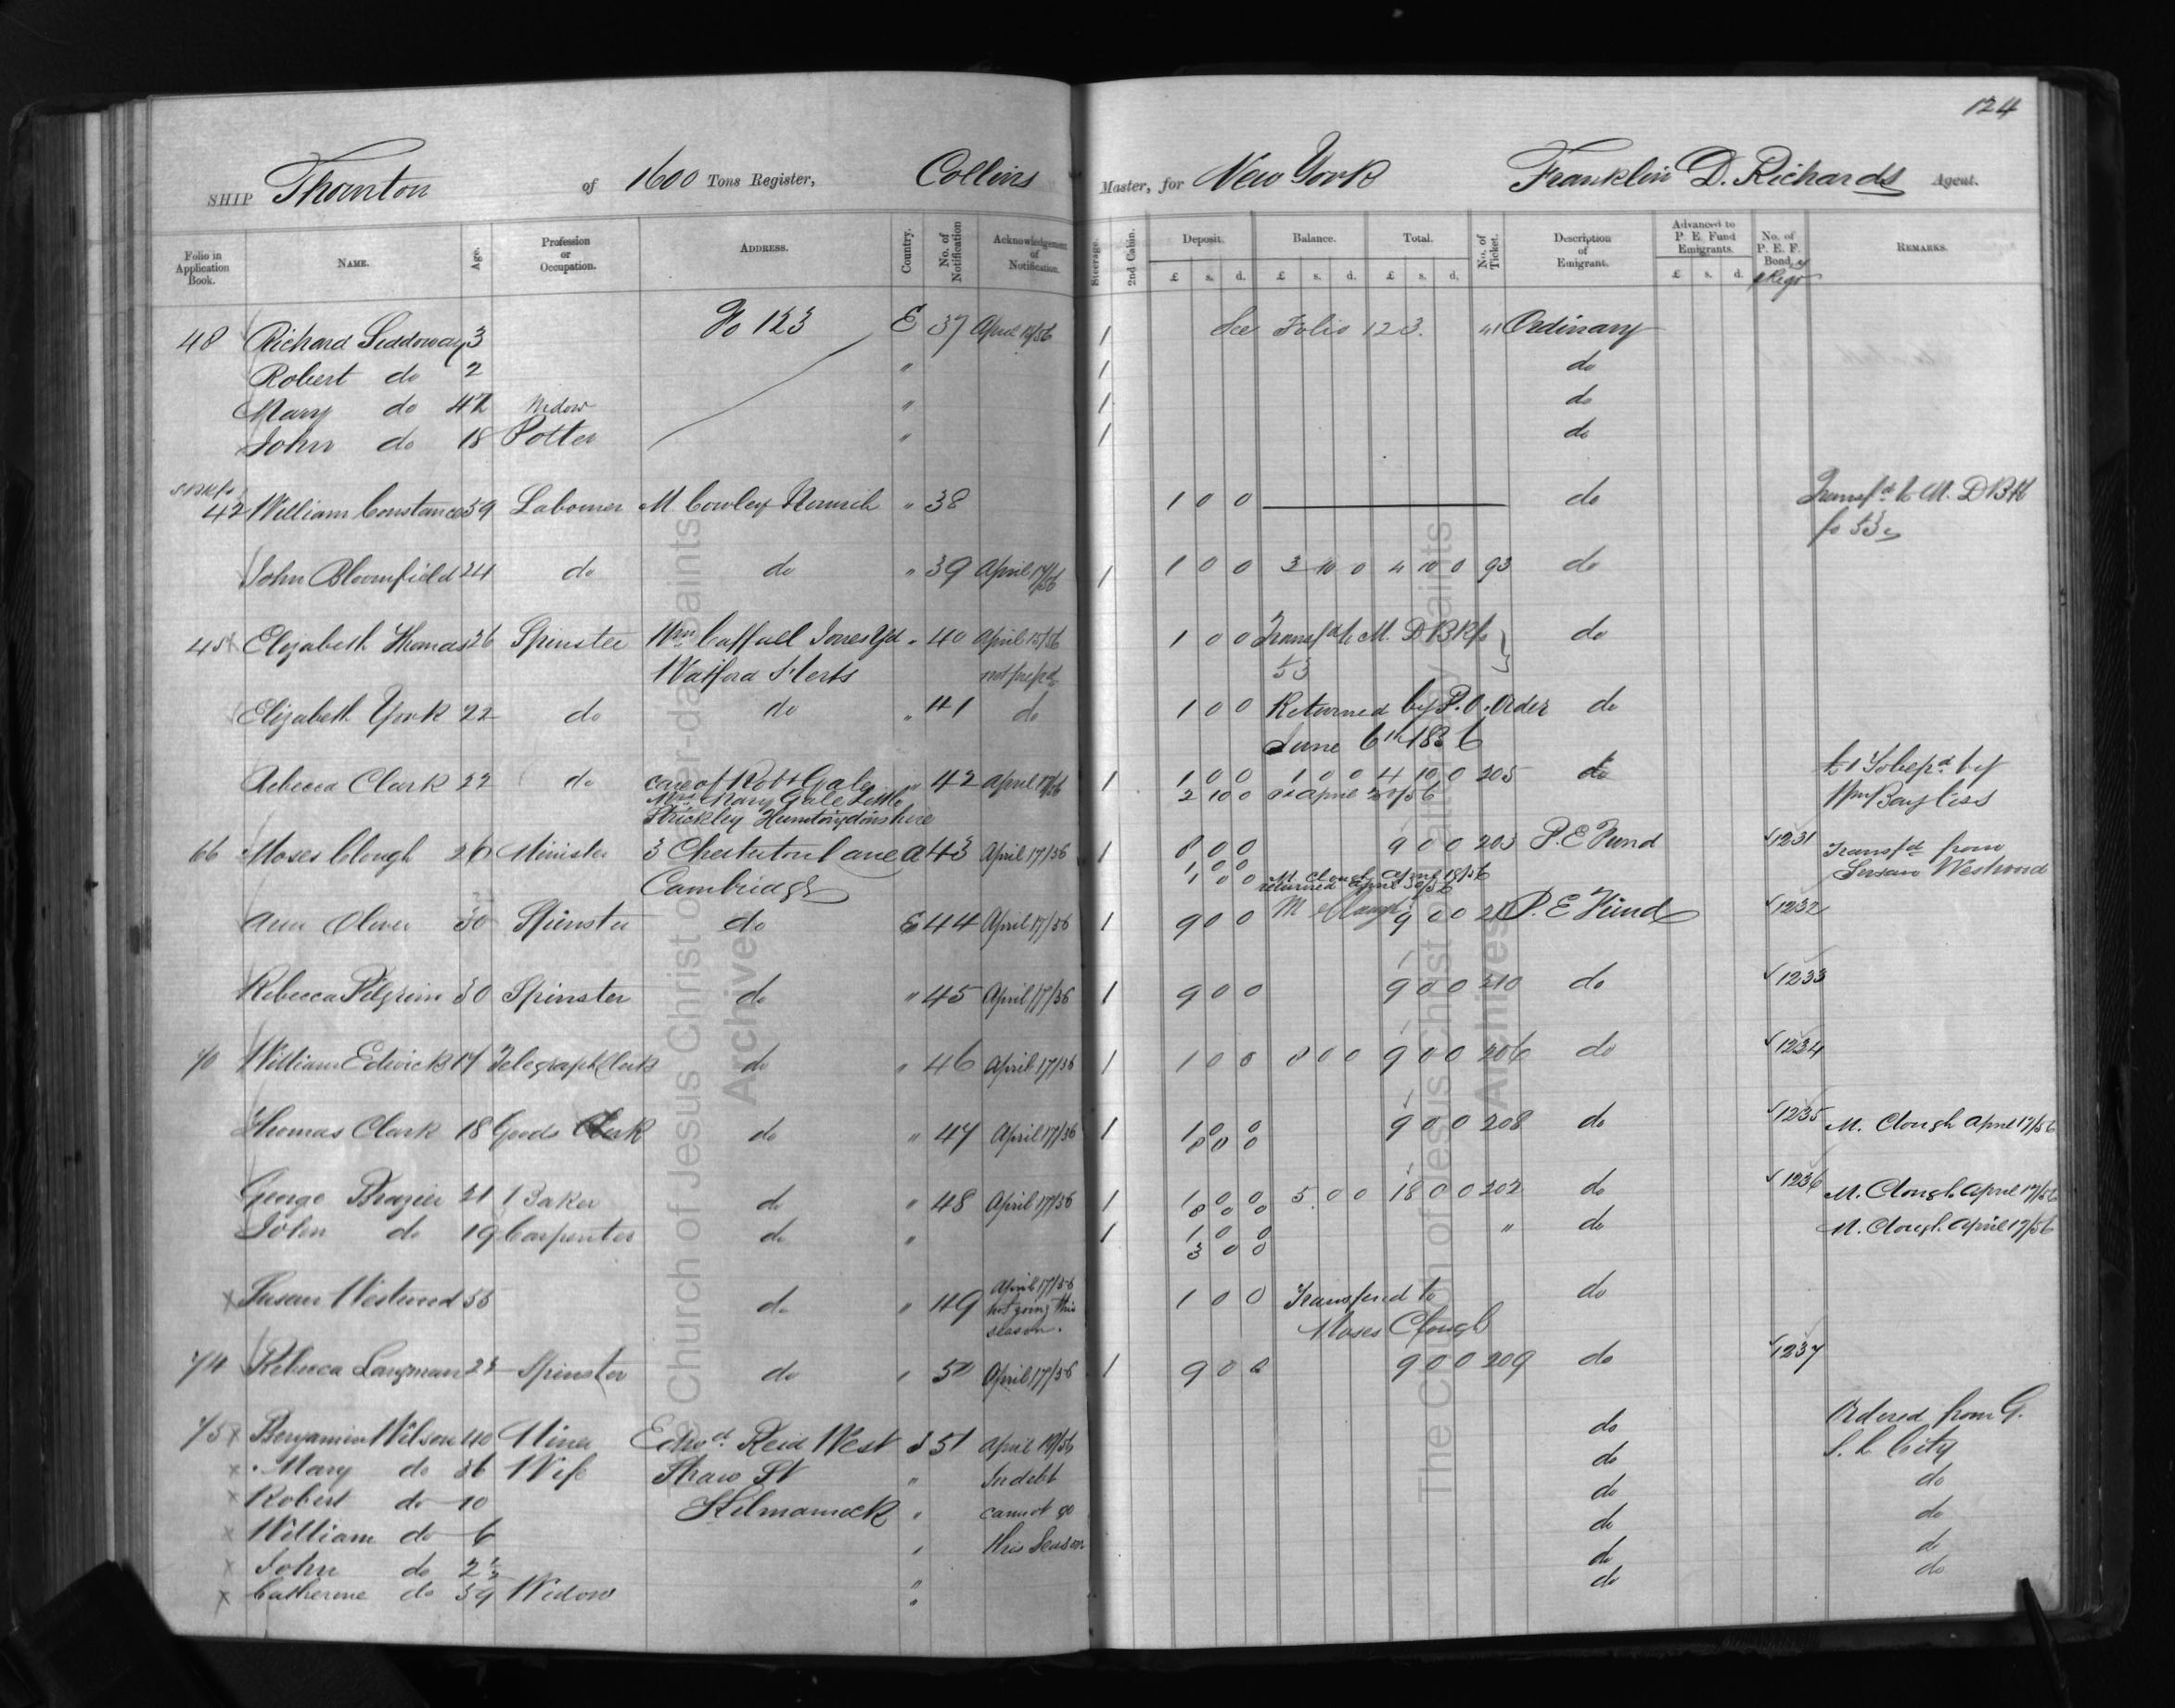 124
SHIP Thornton of 1600 Tons Register, Collins Master, for New York Franklin D. Richards Agent.
Folio in Application Book. NAME. Age. Profession or Occupation. ADDRESS. Country. No. of Notification Acknowledgement of Notification. Steerage. 2nd Cabin. Deposit. £ s. d. Balance. £ s. d. Total. £ s. d. No. of Ticket. Description of Emigrant. Advanced to P. E. Fund Emigrants. £ s. d. No. of P. E. F. Bond REMARKS.
48 Richard Siddoway 3 Fo 123 E 37 April 19/56 1 See Folio 123. 41 Ordinary
Robert do 2 " 1 do
Mary do 47 Widow " 1 do
John do 18 Potter " 1 do
42 William Constance 59 Labourer M. Cowley Norwich " 38 1 0 0 do Transfd to M. D B
fo 53
John Bloomfield 24 do do " 39 April 17/56 1 1 0 0 3 10 0 4 10 0 93 do
45 Elizabeth Thomas 26 Spinster Wm Caffall Jones Yd " 40 April 15/56 1 0 0 Transfd to M. D B K fo do
Watford Herts not prepd 53
Elizabeth York 22 do do " 41 do 1 0 0 Returned by P. O. Order do
June 6th 1856
Rebecca Clark 22 do care of Robt Gale " 42 April 17/56 1 1 0 0 1 0 0 4 10 0 205 do £1 To be pd by
Mrs Mary Gale Little 2 10 0 April Wm Bayliss
Stuckley Huntingdonshire
66 Moses Clough 26 Minister 3 Chesterton Lane 43 April 17/56 1 8 0 0 9 0 0 203 P. E Fund 1231 Transfd from
Cambridge 1 0 0 M. Clough April 19/56 Susan Westwood
1 0 0 returned April 30/56
Ann Oliver 30 Spinster do E 44 April 17/56 1 9 0 0 M Clough 9 0 0 P. E Fund 1232
Rebecca Pilgrim 30 Spinster do " 45 April 17/56 1 9 0 0 9 0 0 210 do 1233
70 William Edwicks 17 Telegraph Clerk do " 46 April 17/56 1 1 0 0 8 0 0 9 0 0 206 do 1234
Thomas Clark 18 Goods Clerk do " 47 April 17/56 1 1 0 0 9 0 0 208 do 1235 M. Clough April 17/56
8 0 0
George Brazier 21 Baker do " 48 April 17/56 1 1 0 0 5 0 0 18 0 0 202 do 1236 M. Clough April 17/56
8 0 0
John do 19 Carpenter do " 1 1 0 0 " do M. Clough April 17/56
3 0 0
Susan Westwood 55 do " 49 April 17/56 1 0 0 Transferred to do
not going this Moses Clough
season.
74 Rebecca Langman 23 Spinster do " 50 April 17/56 1 9 0 0 9 0 0 209 do 1237
75 Benjamin Wilson 40 Miner Edwd Reid West S 51 April 19/56 do Ordered from G.
Mary do 36 Wife Shaw St " In debt do S. L. City
Robert do 10 Kilmarnock " cannot go do do
William do 6 " this Season do do
John do 2½ " do do
Catherine do 59 Widow " do do
The Church of Jesus Christ of Latter-day Saints
Archives
The Church of Jesus Christ of Latter-day Saints
Archives